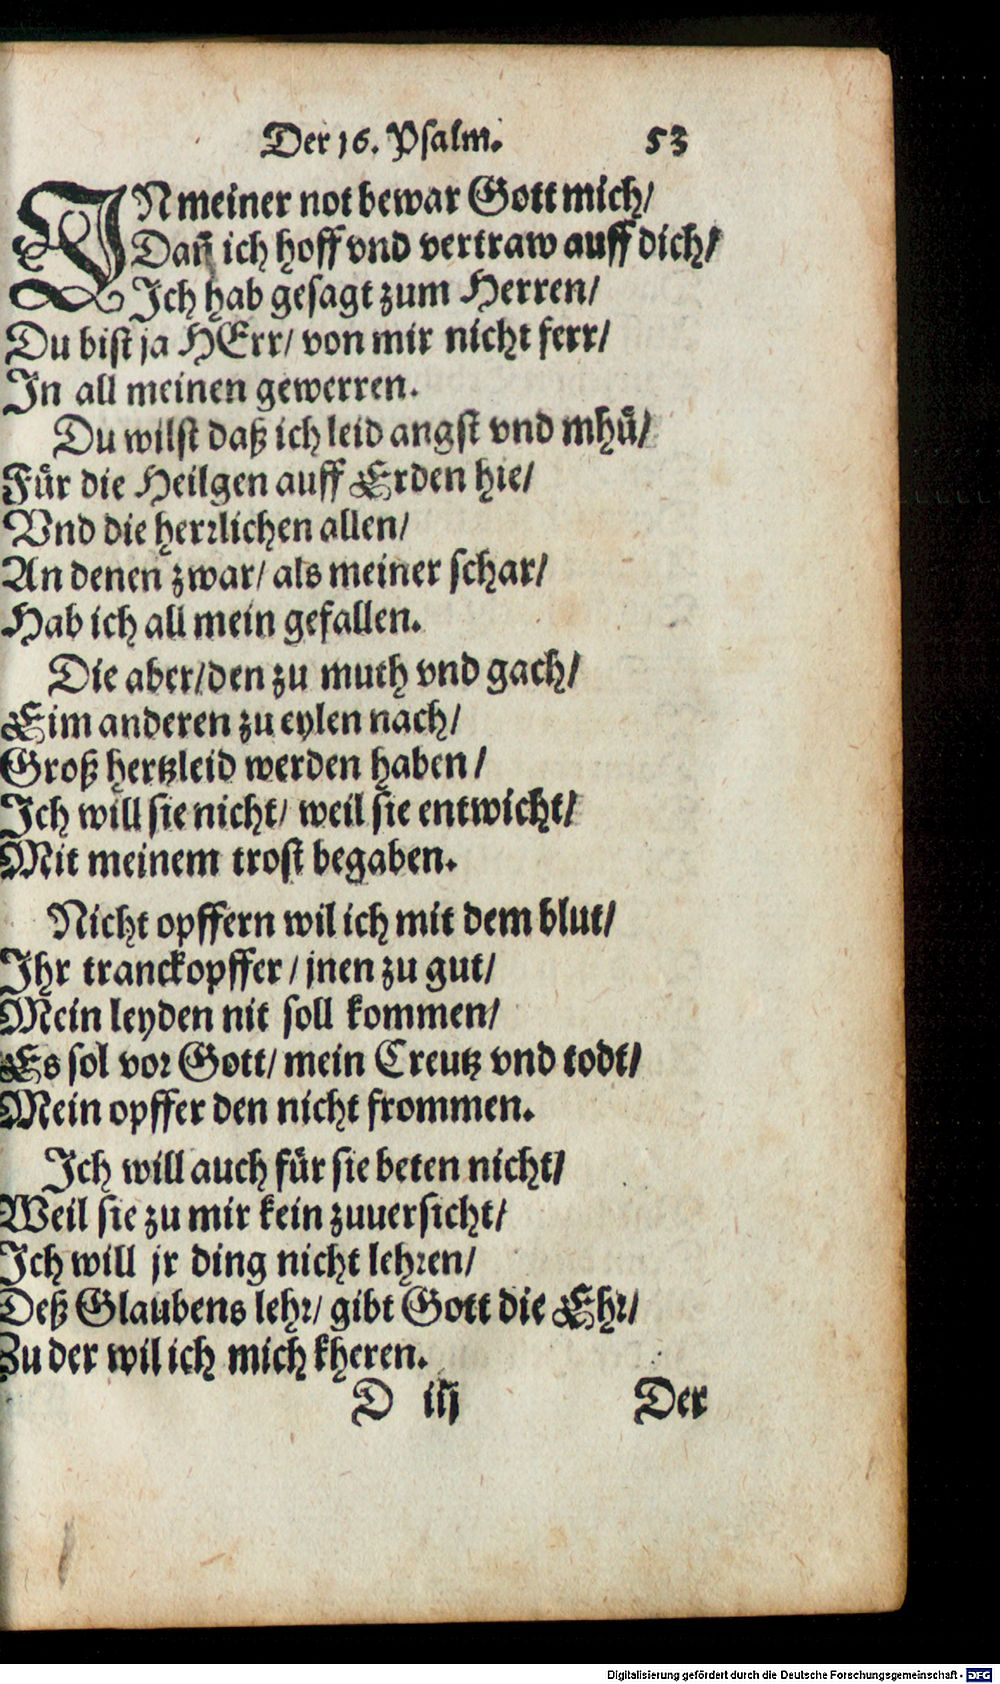 Der 16. Psalm. 53
IN meiner not bewar Gott mich/
Dañ ich hoff vnd vertraw auff dich/
Ich hab gesagt zum Herren/
Du bist ja HErr/ von mir nicht ferr/
In all meinen gewerren.
Du wilst daß ich leid angst vnd mhuͤ/
Fuͤr die Heilgen auff Erden hie/
Vnd die herrlichen allen/
An denen zwar/ als meiner schar/
Hab ich all mein gefallen.
Die aber/ den zu muth vnd gach/
Eim anderen zu eylen nach/
Groß hertzleid werden haben/
Ich will sie nicht/ weil sie entwicht/
Mit meinem trost begaben.
Nicht opffern wil ich mit dem blut/
Ihr tranckopffer/ jnen zu gut/
Mein leyden nit soll kommen/
Es sol vor Gott/ mein Creutz vnd todt/
Mein opffer den nicht frommen.
Ich will auch fuͤr sie beten nicht/
Weil sie zu mir kein zuuersicht/
Ich will jr ding nicht lehren/
Deß Glaubens lehr/ gibt Gott die Ehr/
Zu der wil ich mich kheren.
D iij Der
Digitalisierung gefördert durch die Deutsche Forschungsgemeinschaft - DFG